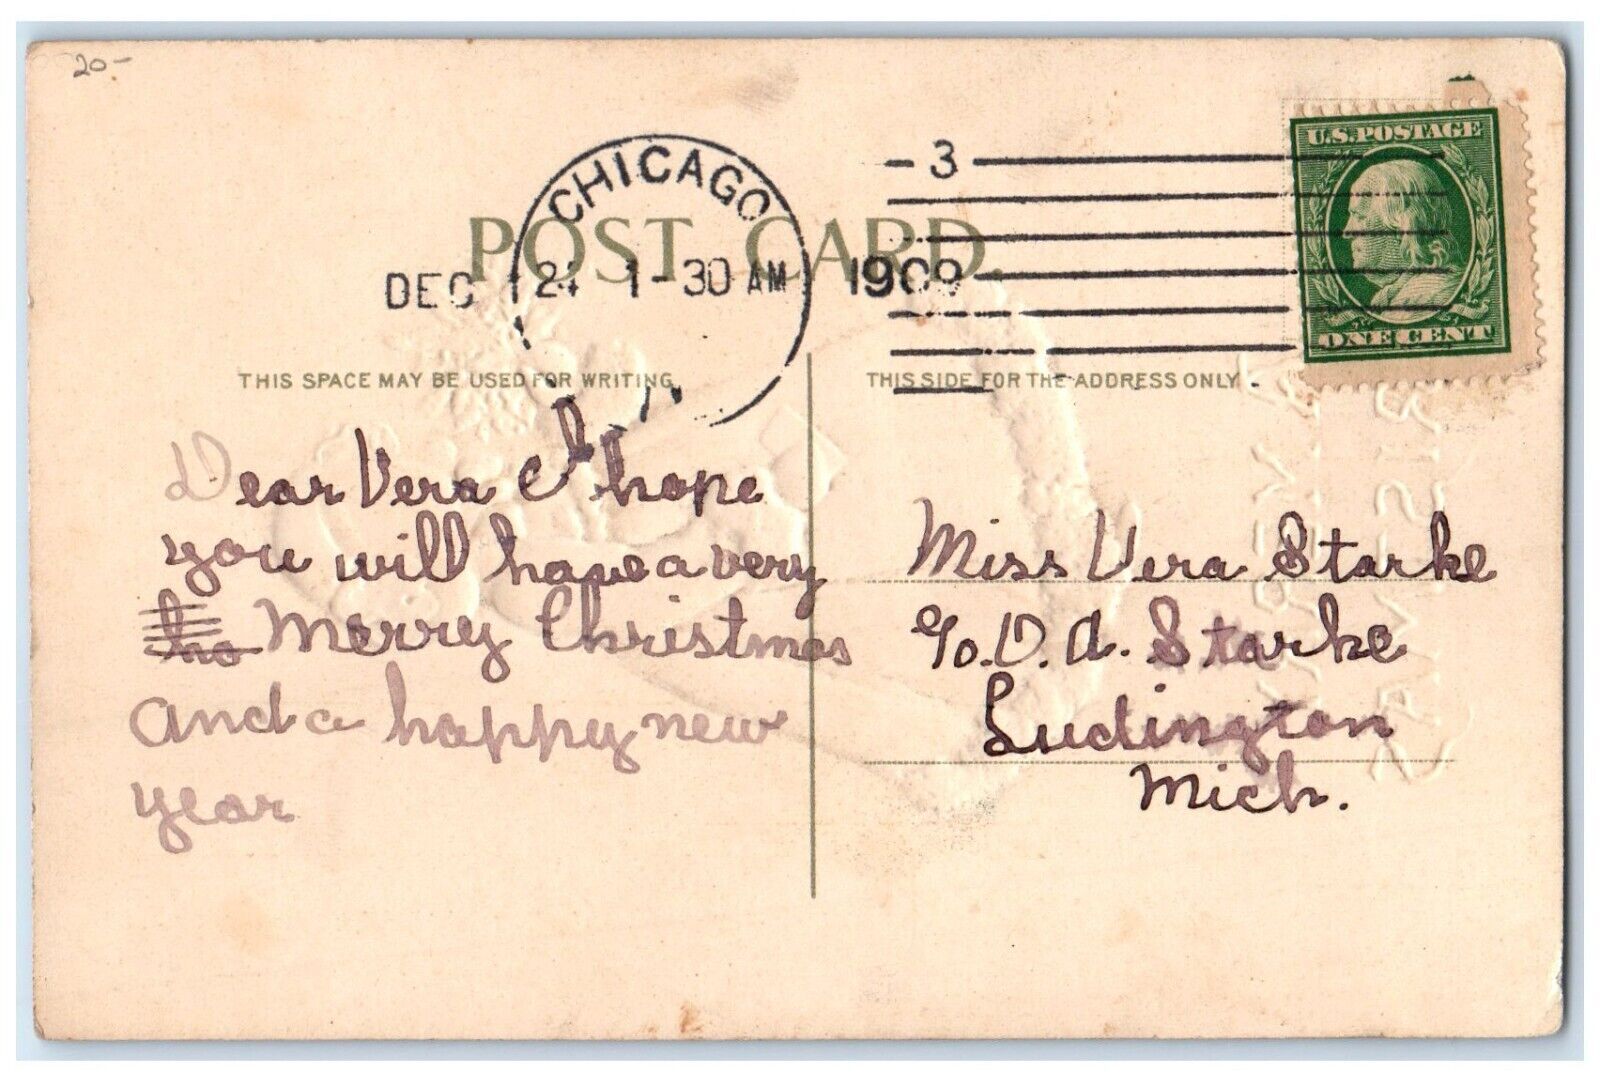 20-
U.S. POSTAGE
ONE CENT
CHICAGO
3
DEC 24 1-30 AM 1909
POST CARD.
THIS SPACE MAY BE USED FOR WRITING
THIS SIDE FOR THE ADDRESS ONLY
Dear Vera I hope
you will have a very
ho Merry Christmas
and a happy new
year
Miss Vera Starke
c/o. D. A. Starke
Ludington
Mich.